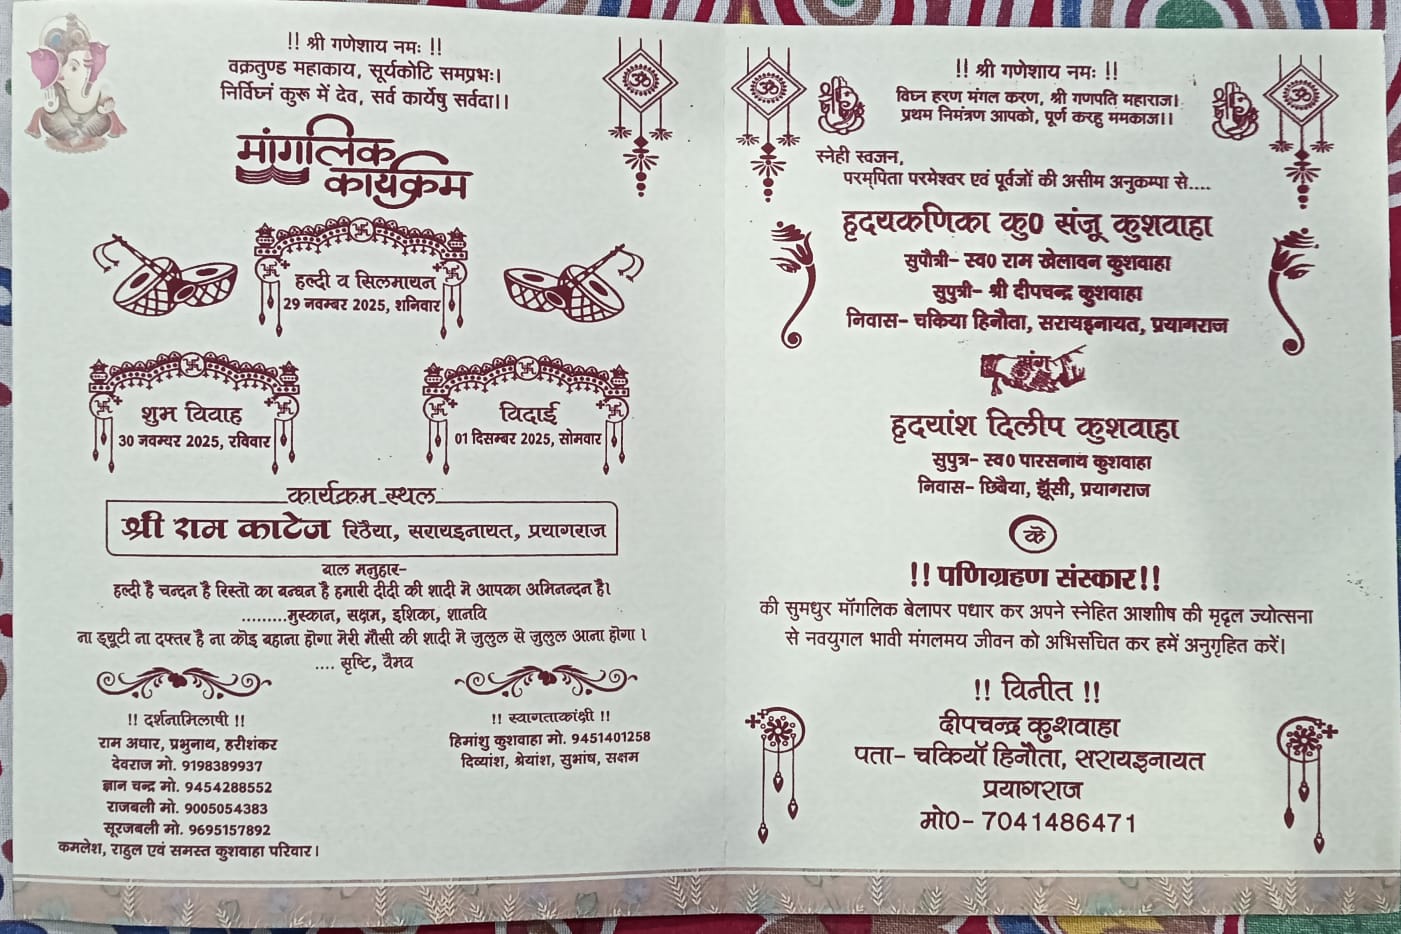 !! श्री गणेशाय नमः !!
वक्रतुण्ड महाकाय, सूर्यकोटि समप्रभः।
निर्विघ्नं कुरू में देव, सर्व कार्येषु सर्वदा।।
मांगलिक
कार्यक्रम
हल्दी व सिलमायन
29 नवम्बर 2025, शनिवार
शुभ विवाह
30 नवम्बर 2025, रविवार
विदाई
01 दिसम्बर 2025, सोमवार
कार्यक्रम स्थल
श्री राम काटेज रिठैया, सरायइनायत, प्रयागराज
बाल मनुहार-
हल्दी है चन्दन है रिस्तो का बन्धन है हमारी दीदी की शादी मे आपका अभिनन्दन है।
.........मुस्कान, सक्षम, इशिका, शानवि
ना ड्यूटी ना दफ्तर है ना कोइ बहाना होगा मेरी मौसी की शादी मे जुलुल से जुलुल आना होगा ।
.... सृष्टि, वैभव
!! दर्शनाभिलाषी !!
राम अधार, प्रभुनाथ, हरीशंकर
देवराज मो. 9198389937
ज्ञान चन्द्र मो. 9454288552
राजबली मो. 9005054383
सूरजबली मो. 9695157892
कमलेश, राहुल एवं समस्त कुशवाहा परिवार।
!! स्वागताकांक्षी !!
हिमांशु कुशवाहा मो. 9451401258
दिव्यांश, श्रेयांश, सुभांष, सक्षम
!! श्री गणेशाय नमः !!
विघ्न हरण मंगल करण, श्री गणपति महाराज।
प्रथम निमंत्रण आपको, पूर्ण करहु ममकाज।।
स्नेही स्वजन,
परम्पिता परमेश्वर एवं पूर्वजों की असीम अनुकम्पा से....
हृदयकणिका कु0 संजू कुशवाहा
सुपौत्री- स्व0 राम खेलावन कुशवाहा
सुपुत्री- श्री दीपचन्द्र कुशवाहा
निवास- चकिया हिनौता, सरायइनायत, प्रयागराज
संग
हृदयांश दिलीप कुशवाहा
सुपुत्र- स्व0 पारसनाथ कुशवाहा
निवास- छिबैया, झूँसी, प्रयागराज
के
!! पणिग्रहण संस्कार!!
की सुमधुर माँगलिक बेलापर पधार कर अपने स्नेहित आशाीष की मृदृल ज्योत्सना
से नवयुगल भावी मंगलमय जीवन को अभिसंचित कर हमें अनुगृहित करें।
!! विनीत !!
दीपचन्द्र कुशवाहा
पता- चकियॉ हिनौता, सरायइनायत
प्रयागराज
मो0- 7041486471